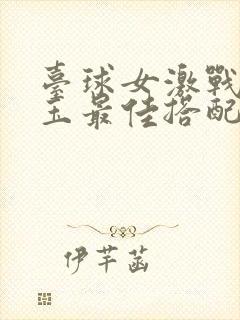 臺球女激戰
王最佳搭配
伊芊菡